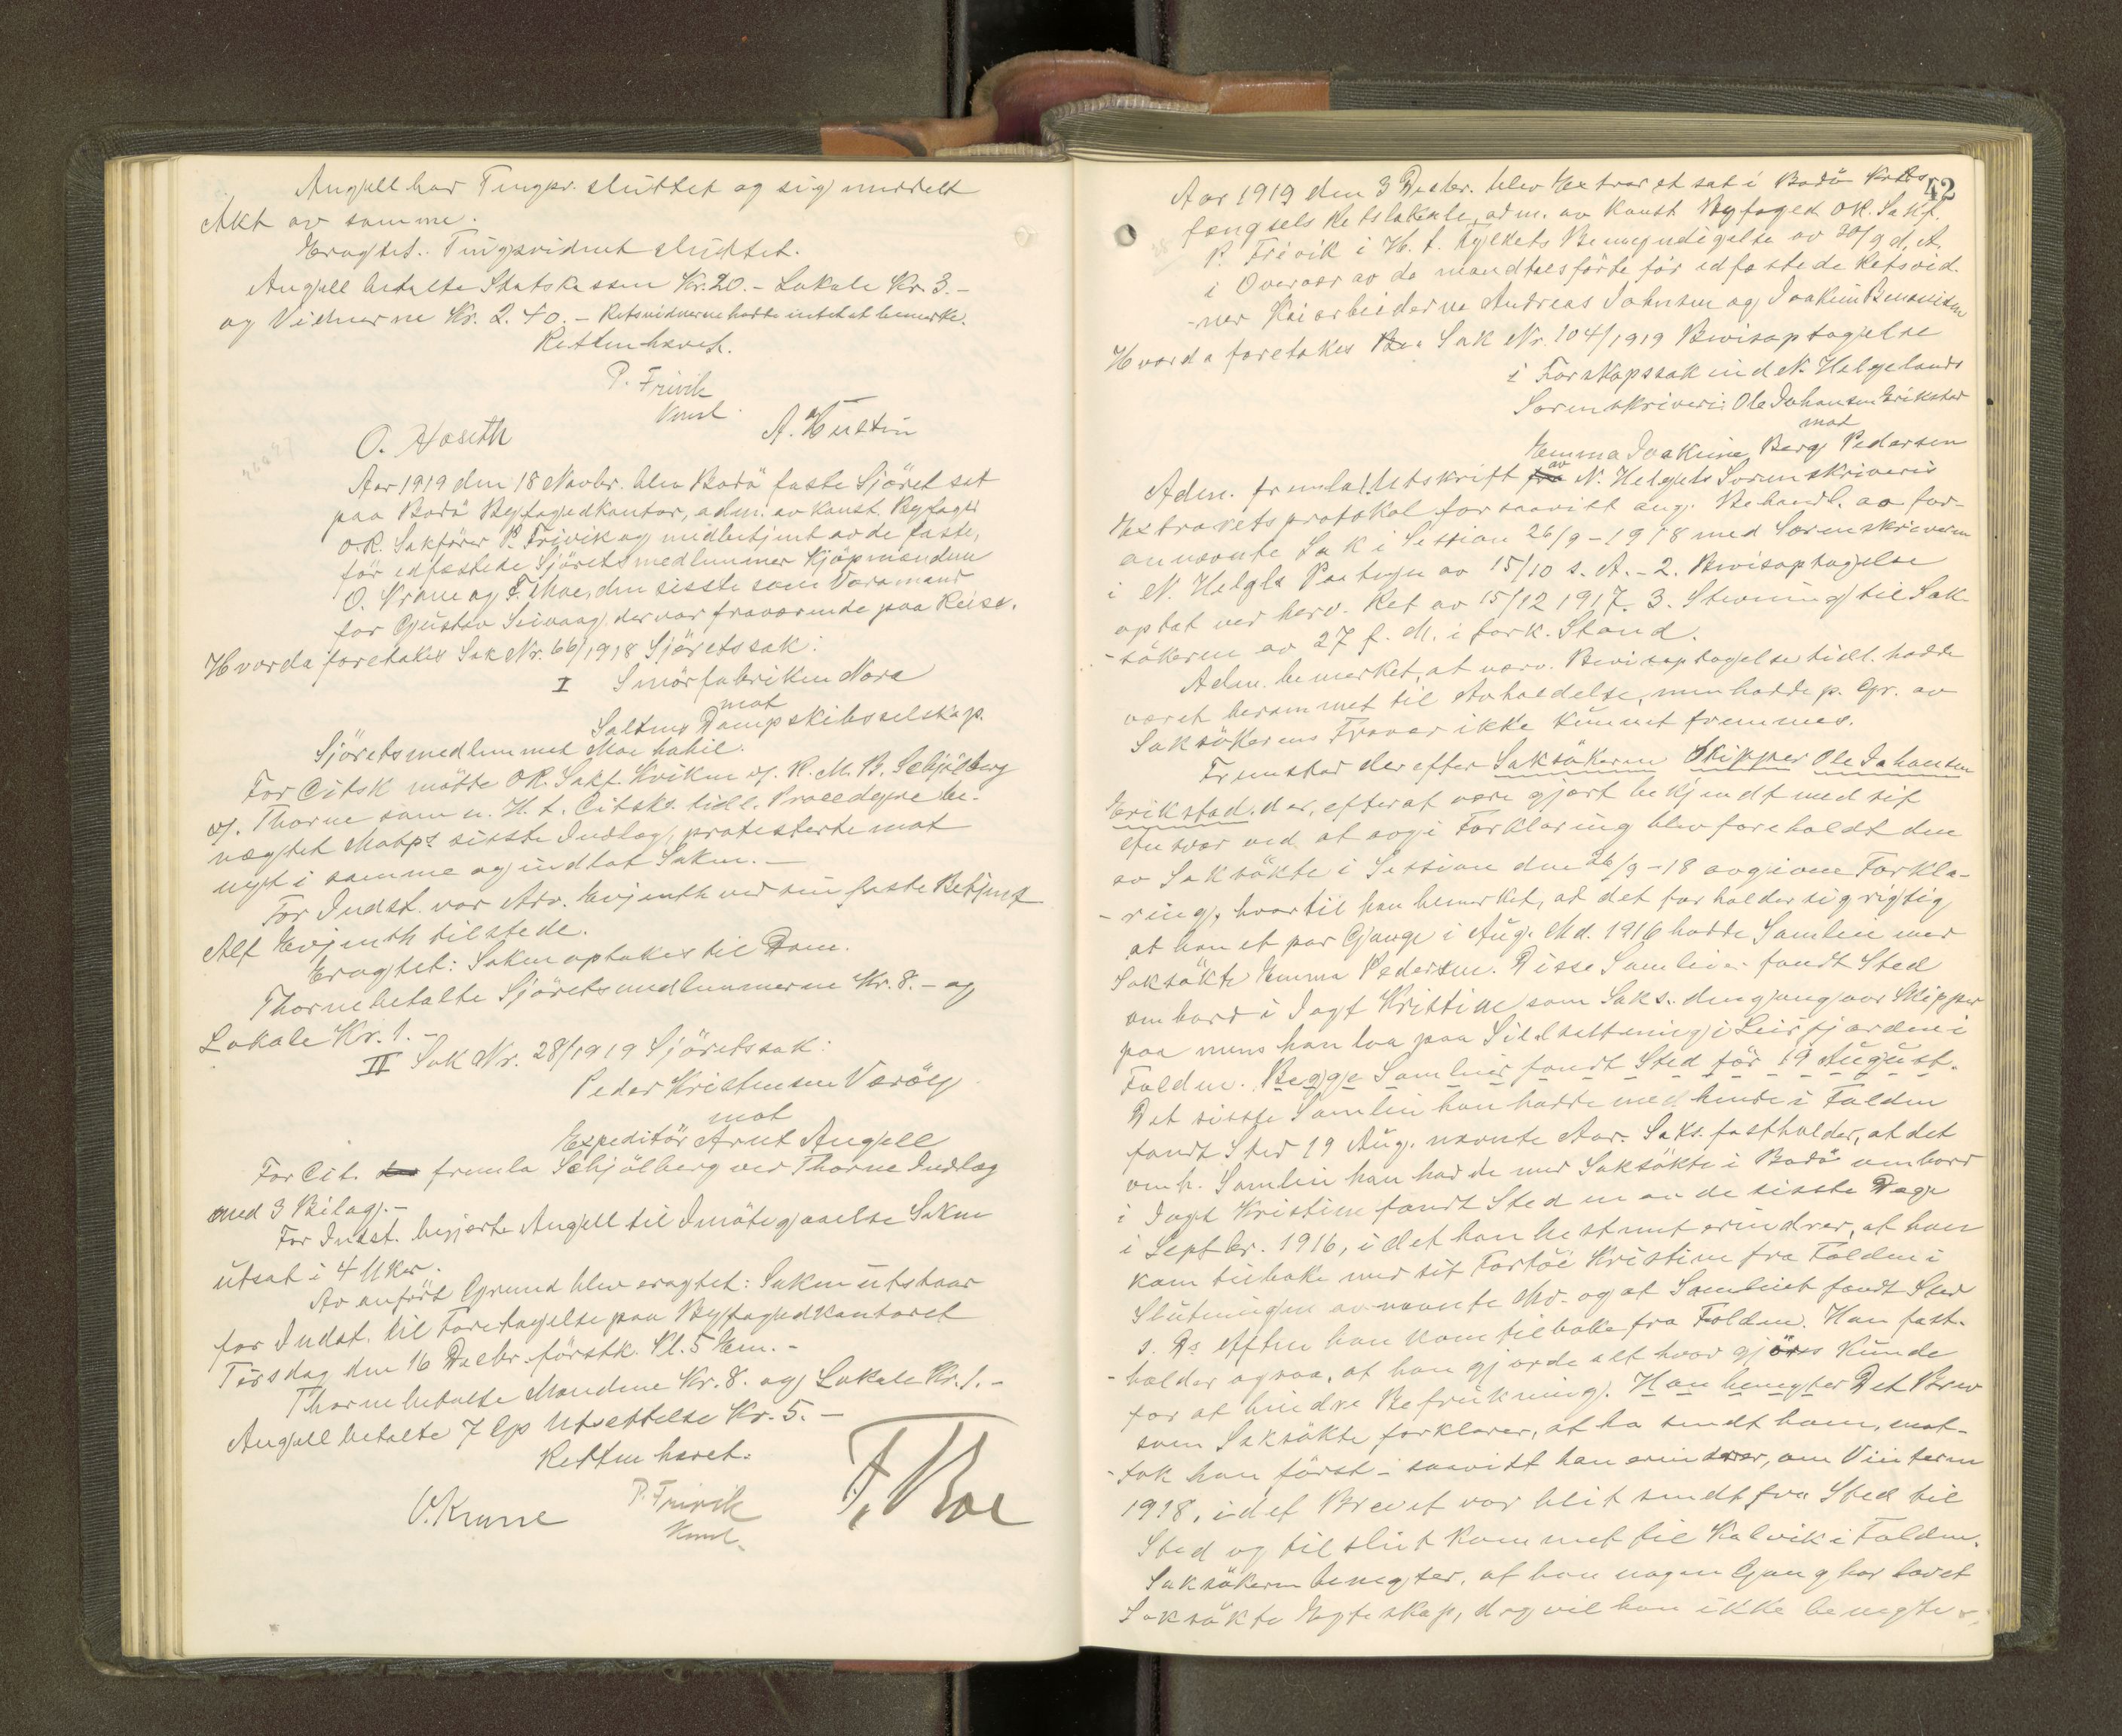 Angell har Tingsv. sluttet og sig meddelt
Akt av samme.
Eragtet: Tingsvidnet sluttet.
Angell betalte Statskassen Kr. 20.- Lokale Kr. 3.-
og Vidnerne Kr. 2.40.- Retsvidnerne hadde intet at bemerke.
Retten hævet.
P. Trivik
Konst.
O. Hoseth
A. Hustin
Aar 1919 den 18 Novbr. blev Bodø faste Sjøret sat
paa Bodø Byfogedkontor, adm. av konst. Byfoged
O.R. Sakfører P. Trivik og medbetjent av de faste,
før edfæstede Sjøretsmedlemmer Kjøpmændene
O. Krane og F. Moe, den sisste som Varamand
for Gustav Seivaag, der var fraværende paa Reise.
Hvorda foretokes Sak Nr. 66/1918 Sjøretssak:
I Smørfabriken Nora
mot
Saltens Dampskibsselskap.
Sjøretsmedlemmet Moe habil.
For Citsk møtte O.R. Sakf. Kviken v/. R. M. B. Schjølberg
v/. Thorne som u. H. t. Citsks. tidl. Procedyre be-
nægtet Motps sisste Indlæg, protesterte mot
nyt i samme og indlot Saken.-
For Indst. var Adv. Evjenth ved sin faste Betjent
Alf Evjenth tilstede.
Eragtet: Saken optakes til Dom.
Thorne betalte Sjøretsmedlemmerne Kr. 8.- og
Lokale Kr. 1.-
II Sak Nr. 28/1919 Sjøretssak:
Peder Kristensen Værøy
mot
Expeditør Arnt Angell
For Cit. fremla Schjølberg ved Thorne Indlæg
med 3 Bilag.-
For Indst. begjærte Angell til Imøtegaaelse Saken
utsat i 4 Uker.
Av anført Grund blev eragtet: Saken utstaar
for Indst. til Foretagelse paa Byfogedkontoret
Tirsdag den 16 Decbr. førstk. Kl. 5 Em.-
Thorne betalte Mændene Kr. 8. og Lokale Kr. 1.-
Angell betalte 7 Utsettelse Kr. 5.-
Retten hævet.
O. Krane
P. Trivik
Konst.
F. Moe
42
Aar 1919 den 3 Decbr. blev Extraret sat i Bodø Krets-
fængsels Retslokale, adm. av konst Byfoged O.R. Sakf.
P. Trivik i H. t. Fylkets Bemyndigelse av 20/9 d. A.
i Overvær av de mandtalsførte før edfæstede Retsvid-
-ner Kaiarbeiderne Andreas Johnsen og Joakim Benonisen
Hvorda foretokes Sak Nr. 104/1919 Bevisoptagelse
i Farskapssak ind N. Helgelands
Sorenskriveri: Ole Johansen Erikstad
mot
Emma Joakime Berg Pedersen
Adm. fremla 1. Utskrift av N. Helgels Sorenskriveris
Extraretsprotokol forsaavitt ang. Behandl. av for-
annævnte Sak i Session 26/9-1918 med Sorenskriveren
i N. Helgls Paategn av 15/10 s. A.- 2. Bevisoptagelse
optat ved herv. Ret av 15/12 1917. 3. Stevning til Sak-
-søkeren av 27 f. M. i fork. Stand.
Adm. bemerket, at nærv. Bevisoptagelse tidl. hadde
været berammet til Avholdelse, men hadde p. Gr. av
Saksøkerens Fravær ikke kunnet fremmes.
Fremstod derefter Saksøkeren Skipper Ole Johansen
Erikstad, der, efterat være gjort bekjendt med sit
Ansvar ved at avgi Forklaring blev foreholdt den
av Saksøkte i Session den 26/9-18 avgivne Forkla-
-ring, hvortil han bemerket, at det forholder sig rigtig
at han et par Gange i Aug. Md. 1916 hadde Samleie med
Saksøkte Emma Pedersen. Disse Samleier fandt Sted
ombord i Jagt Kristine som Saks. dengang var Skipper
paa mens han laa paa Sildsettening i Leirfjorden i
Folden. Begge Samleier fandt Sted før 19 August.
Det sisste Samleie han hadde med hende i Folden
fandt Sted 19 Aug. nævnte Aar. Saks. fastholder, at det
omh. Samleie han hadde med Saksøkte i Bodø ombord
i Jagt Kristine fandt Sted en av de sisste Dage
i Septbr. 1916, idet han bestemt erindrer, at han
kom tilbake med sit Fartøi Kristine fra Folden i
Slutningen av nævnte Md. og at Samleiet fandt Sted
s. Ds. Aften han kom tilbake fra Folden. Han fast-
-holder ogsaa, at han gjorde alt hvad gjøres kunde
for at hindre Befrukning. Han benegter Det Brev
som Saksøkte forklarer, at ha sendt ham, mot-
-tok han først - saavitt han erindrer, om Vinteren
1918, idet Brevet var blit sendt fra Sted til
Sted og til slut kommet til Kalvik i Folden.
Saksøkeren benegter, at han nogen Gang har lovet
Saksøkte Egteskap, dog vil han ikke benegte